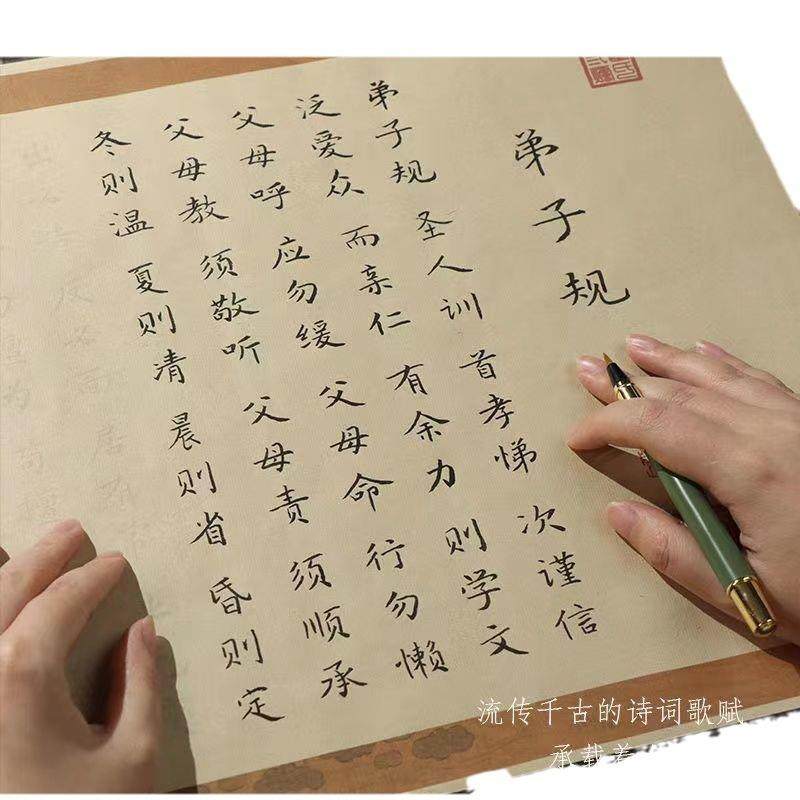 弟子规
弟子规 圣人训 首孝悌 次谨信
泛爱众 而亲仁 有余力 则学文
父母呼 应勿缓 父母命 行勿懒
父母教 须敬听 父母责 须顺承
冬则温 夏则凊 晨则省 昏则定
流传千古的诗词歌赋
承载着